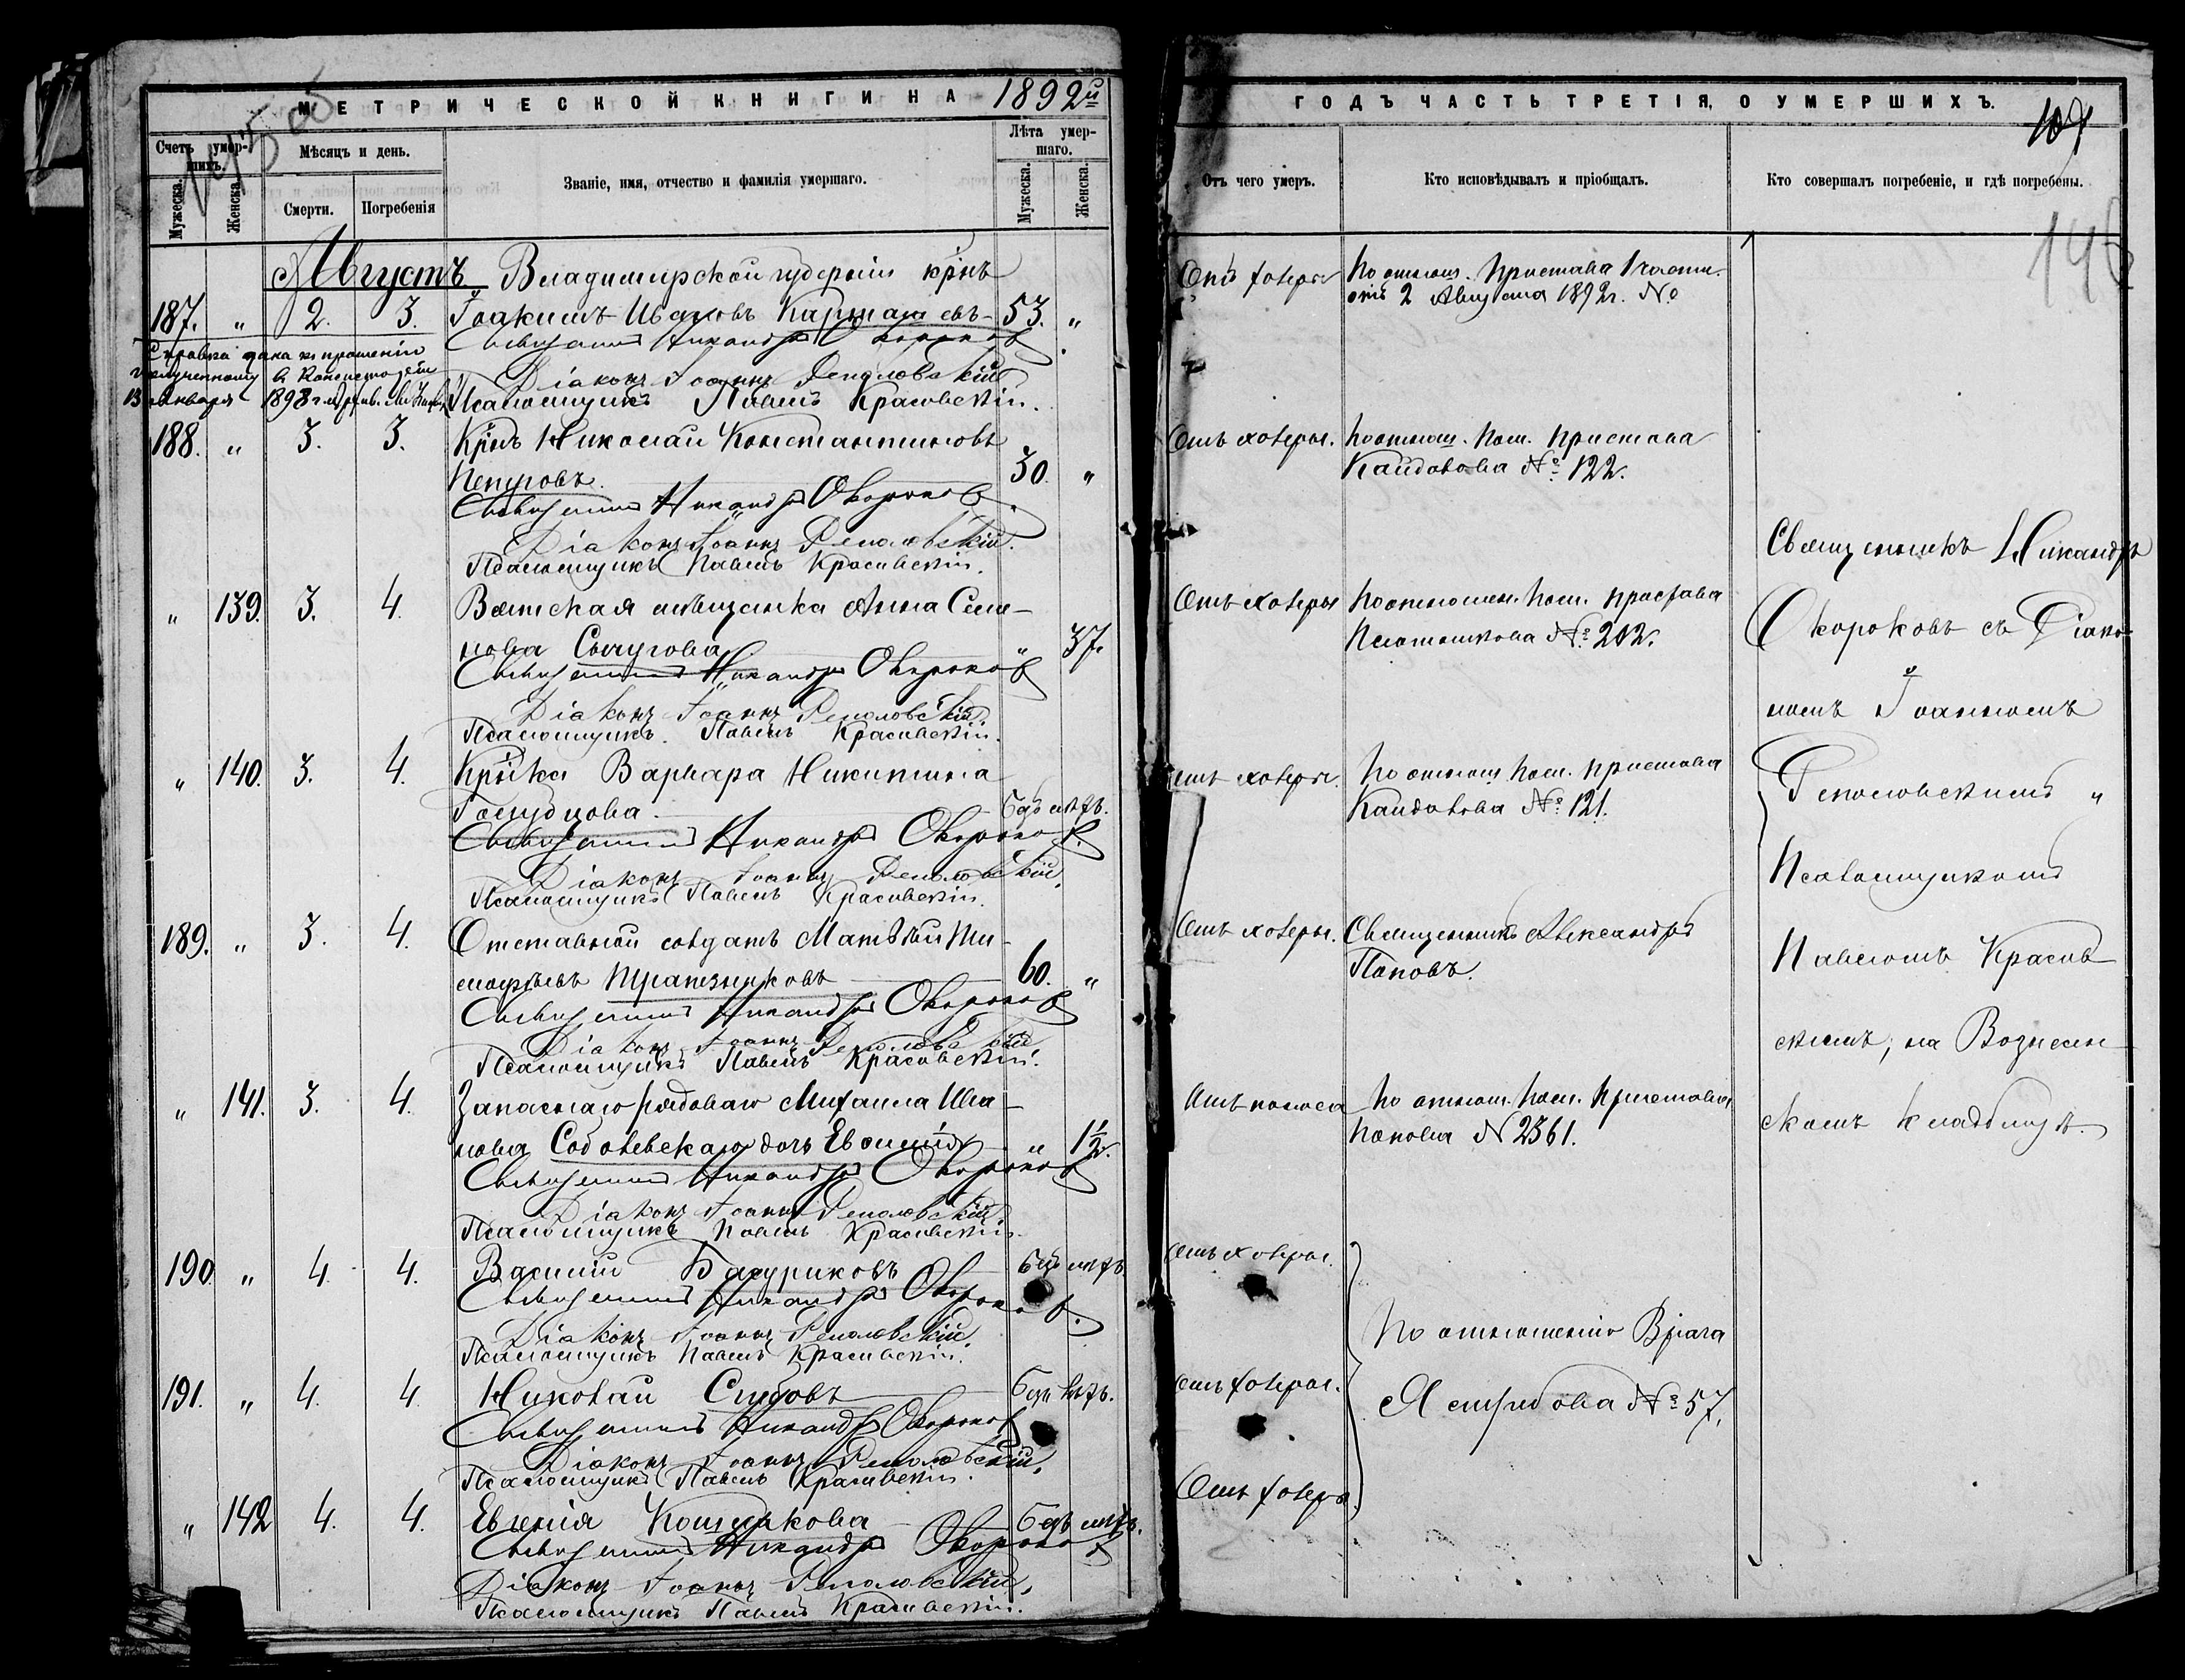 МЕТРИЧЕСКОЙ КНИГИ НА 1892й
Счетъ умер-
шихъ.
Мѣсяцъ и день.
Званіе, имя, отчество и фамилія умершаго.
Лѣта умер-
шаго.
Мужеска.
Женска.
Смерти.
Погребенія
Мужеска.
Женска.
Августъ Владимирской губерніи крнъ
187. " 2. 3. Іоакимъ Ивановъ Карташевъ 53. "
Справка дана къ прошенію
полученному въ Консисторіи
13 января 1898 г.
Священникъ Никандръ Окороковъ
Діаконъ Іоаннъ Реполовскій
Псаломщикъ Павелъ Красовскій.
188. " 3. 3. Крнъ Николай Константиновъ
Петровъ. 30. "
Священникъ Никандръ Окороковъ.
Діаконъ Іоаннъ Реполовскій.
Псаломщикъ Павелъ Красовскій.
" 139. 3. 4. Вятская мѣщанка Анна Семе-
нова " 37.
Священникъ Никандръ Окороковъ
Діаконъ Іоаннъ Реполовскій.
Псаломщикъ Павелъ Красовскій.
" 140. 3. 4. Крнка Варвара Никитина
Голубцова. 6 лѣтъ.
Священникъ Никандръ Окороковъ.
Діаконъ Іоаннъ Реполовскій.
Псаломщикъ Павелъ Красовскій.
189. " 3. 4. Отставной солдатъ Матвѣй Ти-
мофѣевъ 60. "
Священникъ Никандръ Окороковъ
Діаконъ Іоаннъ Реполовскій
Псаломщикъ Павелъ Красовскій.
" 141. 3. 4. Запаснаго рядоваго Михаила Ива-
нова Соболевскаго дочь " 1½.
Священникъ Никандръ Окороковъ
Діаконъ Іоаннъ Реполовскій
Псаломщикъ Павелъ Красовскій
190 " 4. 4. Василій
Священникъ Никандръ Окороковъ.
Діаконъ Іоаннъ Реполовскій.
Псаломщикъ Павелъ Красовскій.
191. " 4. 4. Николай
Священникъ Никандръ Окороковъ
Діаконъ Іоаннъ Реполовскій.
Псаломщикъ Павелъ Красовскій.
" 142 4. 4. Евгенія Кошелькова
Священникъ Никандръ Окороковъ
Діаконъ Іоаннъ Реполовскій.
Псаломщикъ Павелъ Красовскій.
ГОДЪ ЧАСТЬ ТРЕТІЯ, О УМЕРШИХЪ.
146
Отъ чего умеръ.
Кто исповѣдывалъ и пріобщалъ.
Кто совершалъ погребеніе, и гдѣ погребены.
Отъ холеры По отнош. Пристава 1 части.
отъ 2 Августа 1892 г. №
Отъ холеры. По отнош. Пом. Пристава
Кайдалова № 122.
Отъ холеры По отношен. Пом. пристава
Плотникова № 202.
Отъ холеры. По отнош. Пом. пристава
Кайдалова № 121.
Отъ холеры. Священникъ Александръ
Поповъ.
Отъ поноса По отнош. Пом. Пристава
Попова № 2361.
Отъ холеры.
Отъ холеры.
Отъ холеры.
По отношенію Врача
Ястребова № 57.
Священникъ Никандръ
Окороковъ съ Діако-
номъ Іоанномъ
Реполовскимъ и
Псаломщикомъ
Павломъ Красов-
скимъ, на Вознесен-
скомъ кладбищѣ.